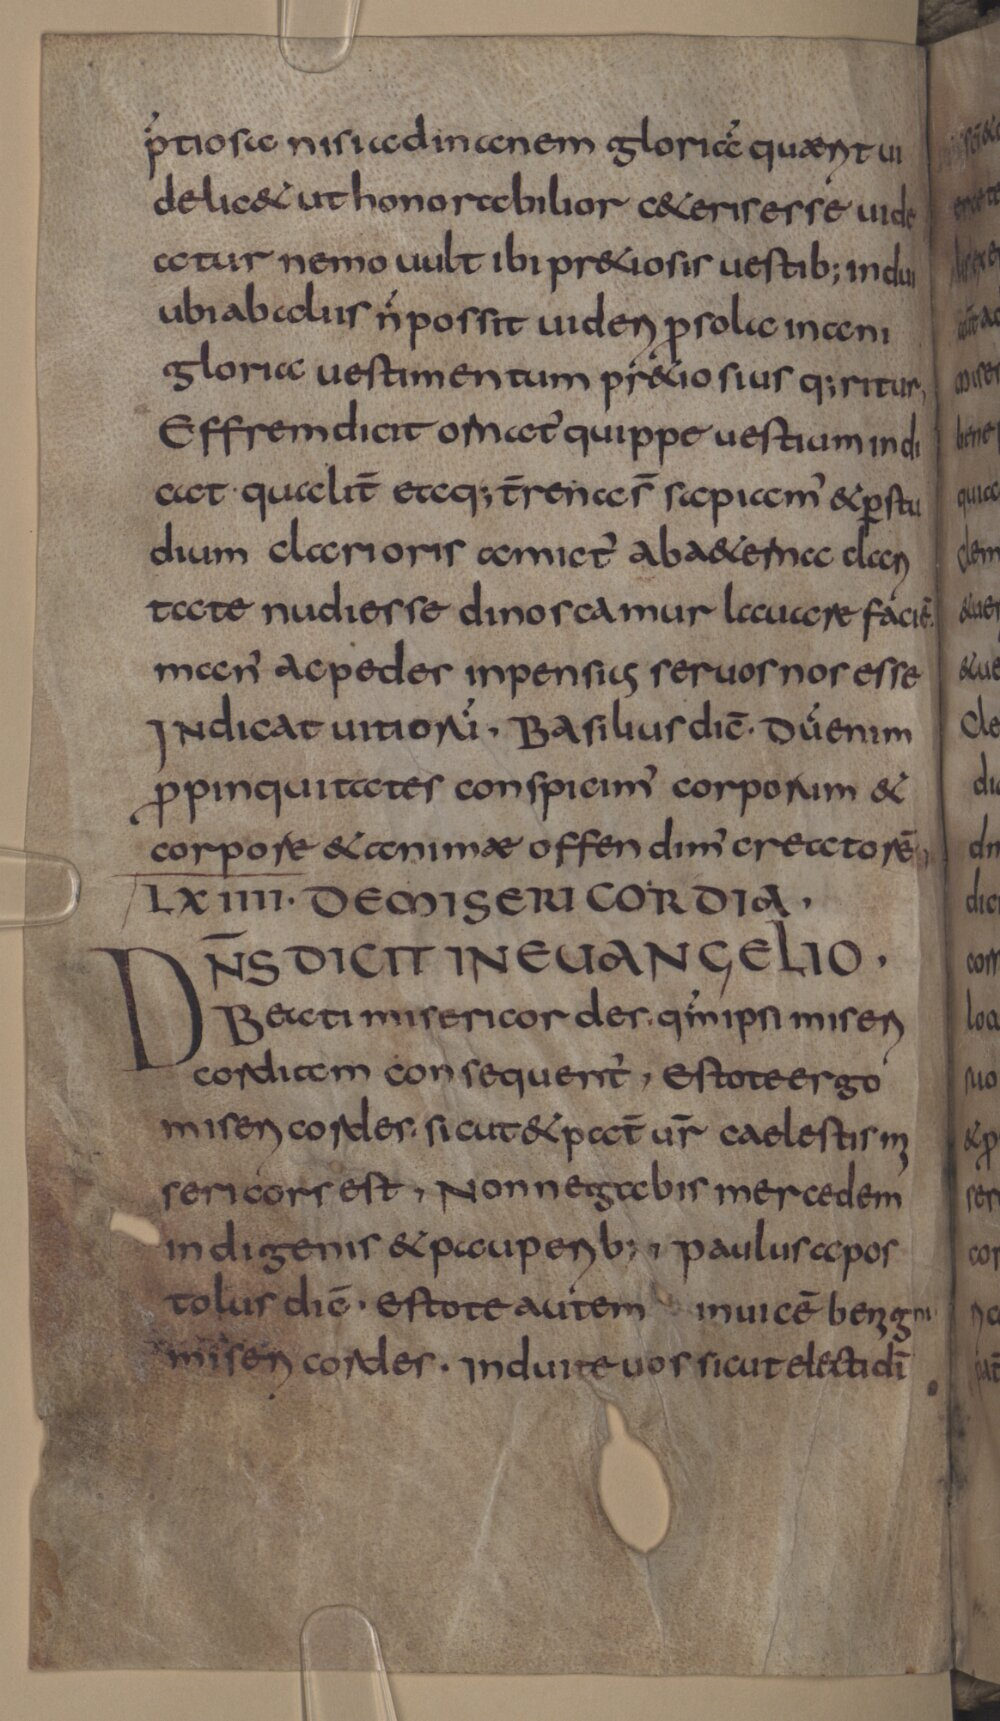 p̄tiosa nisi ad inanem gloriā quærit ui
delic& ut honorabilior c&eris esse uide
atur nemo uult ibi pr&iosis uestib; indui
ubi ab alius n̄ possit uideri p sola inani
gloria uestimentum pr&iosius q;ritur,
Effrem dicit ornat' quippe uestium indi
cat qualit̄ eaq; t̄rena s̄ sapiam' & p stu
dium clarioris amict' aba&erna clari
tate nudi esse dinoscamur lauare faciē.
man' ac pedes inpensius seruos nos esse
Indicat uitiorū. Basilius dic̄. Dū enim
p pinquitates conspicim' corporum &
corpore & animæ offendim' creatorē,
LXIIII. DE MISERICORDIA.
DN̄S DICIT IN EUANGELIO.
Beati misericordes. qm̄ ipsi miseri
cordiam consequent', Estote ergo
misericordes. sicut & pat̄ ur̄ caelestis mi
sericors est, Non negabis mercedem
indigenis & pauperib;, paulus apos
tolus dic̄. Estote autem inuicē benigni
misericordes. Induite uos sicut electi dī